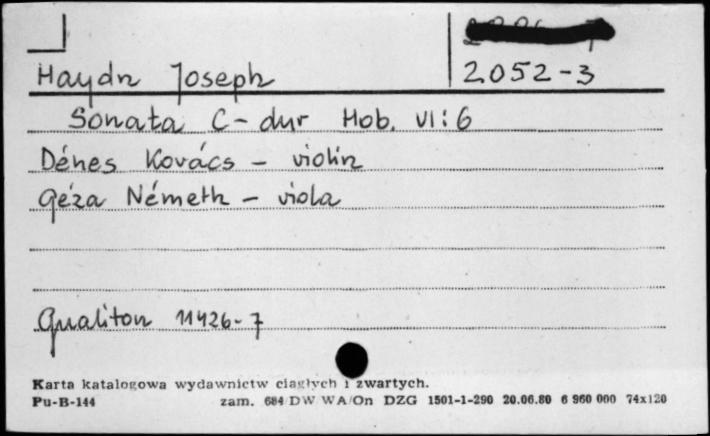 Haydn Joseph
2052-3
Sonata C-dur Hob. VI:6
Dénes Kovács - violin
Géza Németh - viola
Qualiton 11426-7
Karta katalogowa wydawnictw ciągłych i zwartych.
Pu-B-144 zam. 684/DW WA/On DZG 1501-1-290 20.06.80 6 960 000 74x120